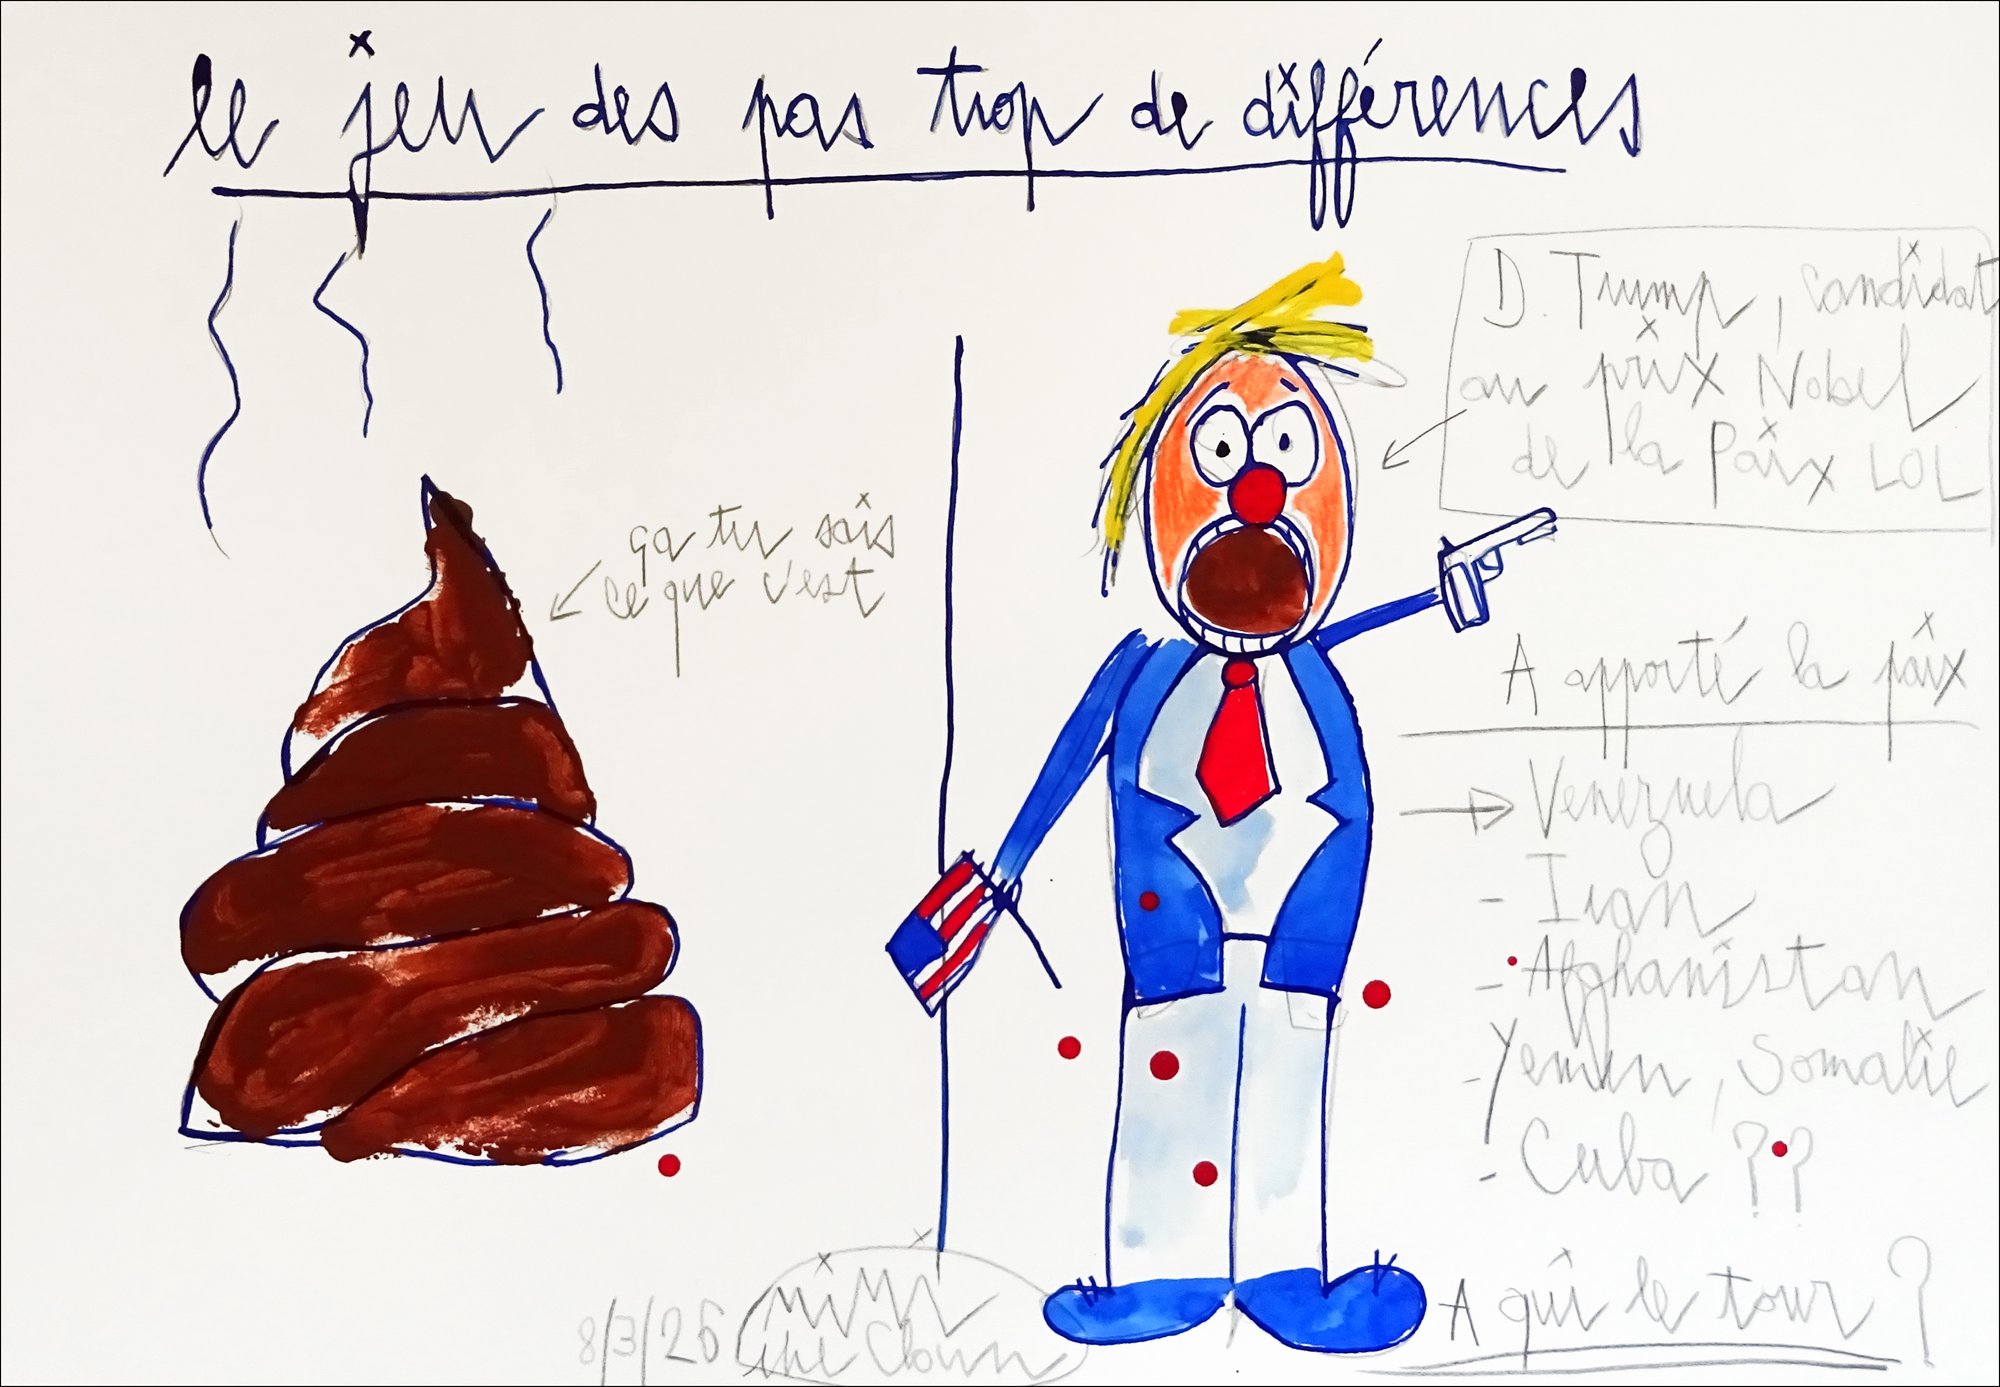 le jeu des pas trop de différences
ça tu sais
ce que c'est
D. Trump, candidat
au prix Nobel
de la Paix LOL
A apporté la paix
→ Venezuela
- Iran
- Afghanistan
- Yemen, Somalie
- Cuba ??
A qui le tour ?
8/3/26
mimi
the Clown